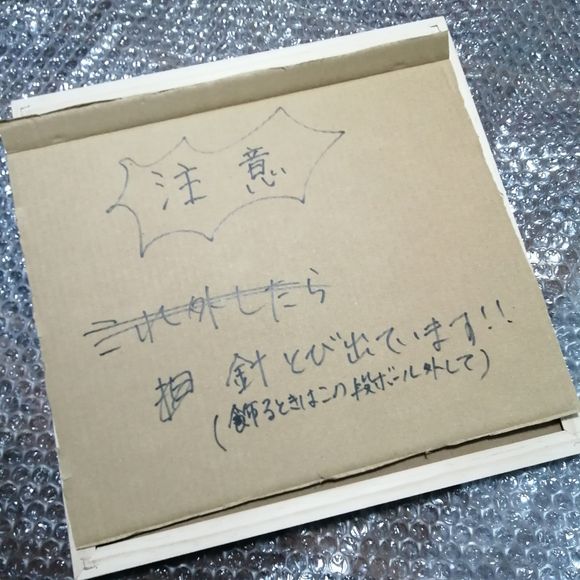 注意
これ外したら
針とび出ています!!
(飾るときはこの段ボール外して)